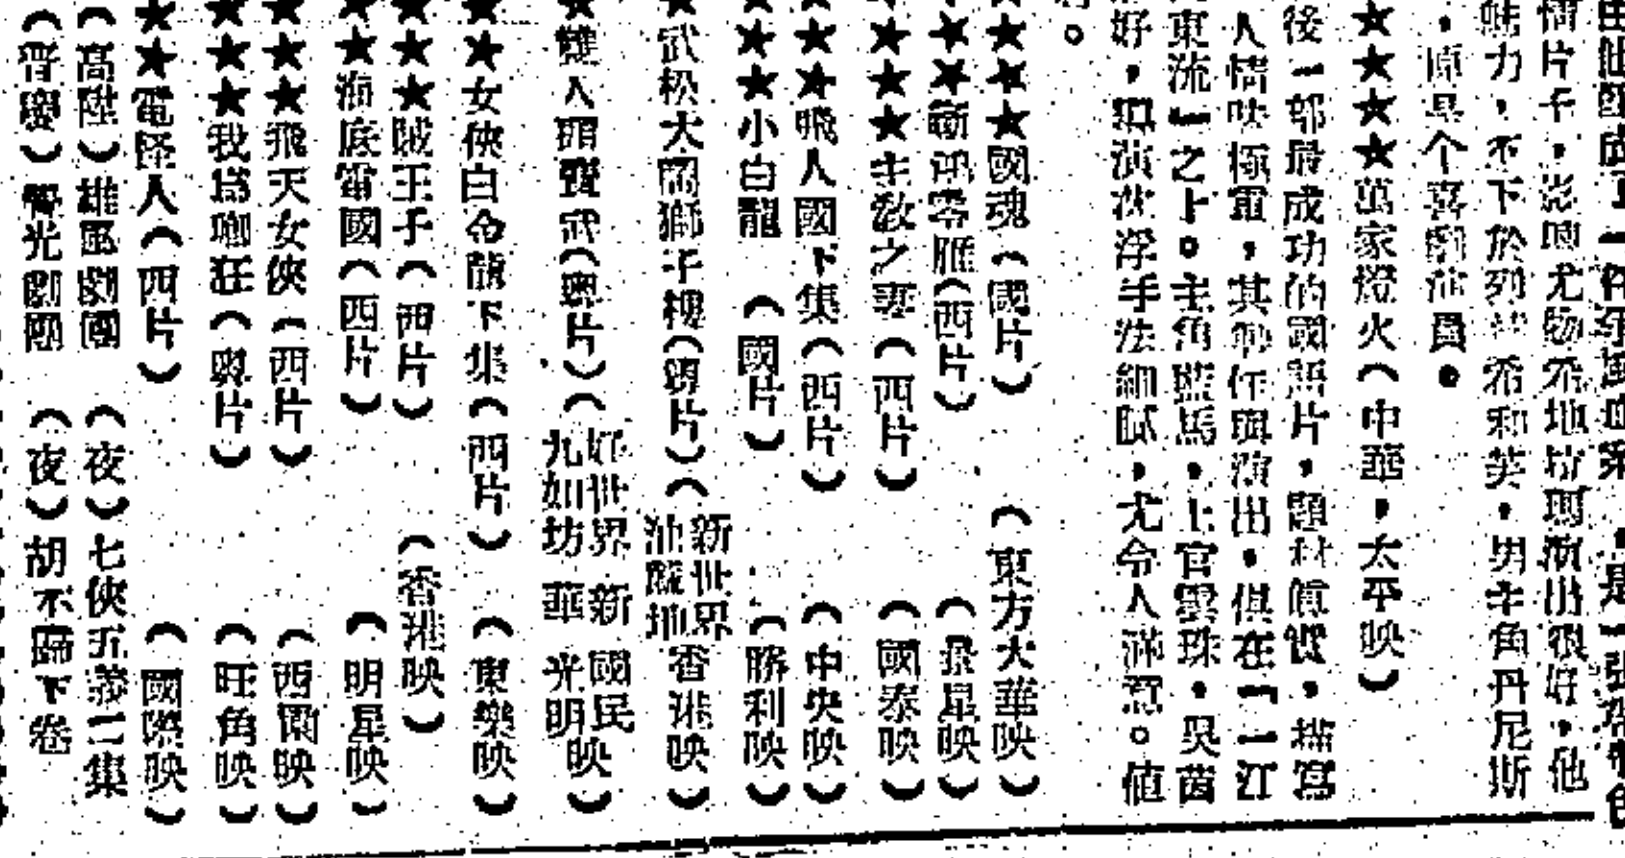 情片子，影壇尤物希地拉瑪演出很好，他
魅力，不下於列打希和芙，男主角丹尼斯
，原是个喜劇演員。
★★★★萬家燈火（中華，太平映）
後一部最成功的國語片，題材真實，描寫
人情味極重，其動作與演出，俱在「一江
東流」之上。主角藍馬，上官雲珠，吳茵
好，與演技浮手法細膩，尤令人滿意。值
。
★★★國魂（國片）（東方大華映）
★★斷鴻零雁（西片）（景星映）
★★★主教之妻（西片）（國泰映）
★★★飛人國下集（西片）（中央映）
★★★小白龍（國片）（勝利映）
★武松大鬧獅子樓（粵片）（新世界油蔴地香港映）
★雙人頭賣武（粵片）（好世界新國民九如坊華光明映）
★★女俠白金龍下集（西片）（東樂映）
★★★賊王子（西片）（香港映）
★★海底雷國（西片）（明星映）
★★★飛天女俠（西片）（西園映）
★★★我為卿狂（粵片）（旺角映）
★★電怪人（西片）（國際映）
（高陞）雄風劇團（夜）七俠五義二集
（普慶）覺光劇團（夜）胡不歸下卷